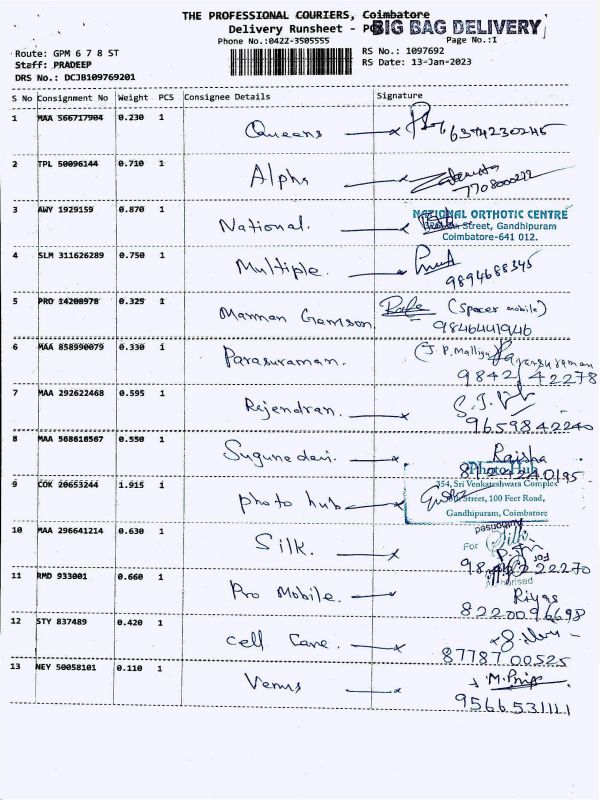 THE PROFESSIONAL COURIERS, Coimbatore
Delivery Runsheet - BIG BAG DELIVERY
Phone No.:0422-3505555 Page No.:1
Route: GPM 6 7 8 ST RS No.: 1097692
Staff: PRADEEP RS Date: 13-Jan-2023
DRS No.: DCJB109769201
S No Consignment No Weight PCS Consignee Details Signature
1 MAA 566717904 0.230 1 Queens 6374230245
2 TPL 50096144 0.710 1 Alpha 7708000222
3 AWY 1929159 0.870 1 National.
NATIONAL ORTHOTIC CENTRE
Street, Gandhipuram
Coimbatore-641 012.
4 SLM 311626289 0.750 1 Multiple. 9894688345
5 PRO 14208978 0.325 1 (Spacer mobile)
9846441946
6 MAA 858990079 0.330 1 Parasuraman. Parasuraman
9842 42278
7 MAA 292622468 0.595 1 Rejendran.
9659842240
8 MAA 568610567 0.550 1 Sugunedevi.
9 COK 20653244 1.915 1 photo hub
Photo Hub
354, Sri Venkateshwara Complex
Street, 100 Feet Road,
Gandhipuram, Coimbatore
10 MAA 296641214 0.630 1 Silk. For Silk
11 RMD 933001 0.660 1 Pro Mobile. Riyas
8220096698
12 STY 837489 0.420 1 cell Care.
8778700525
13 NEY 50058101 0.110 1 Venus
9566531111